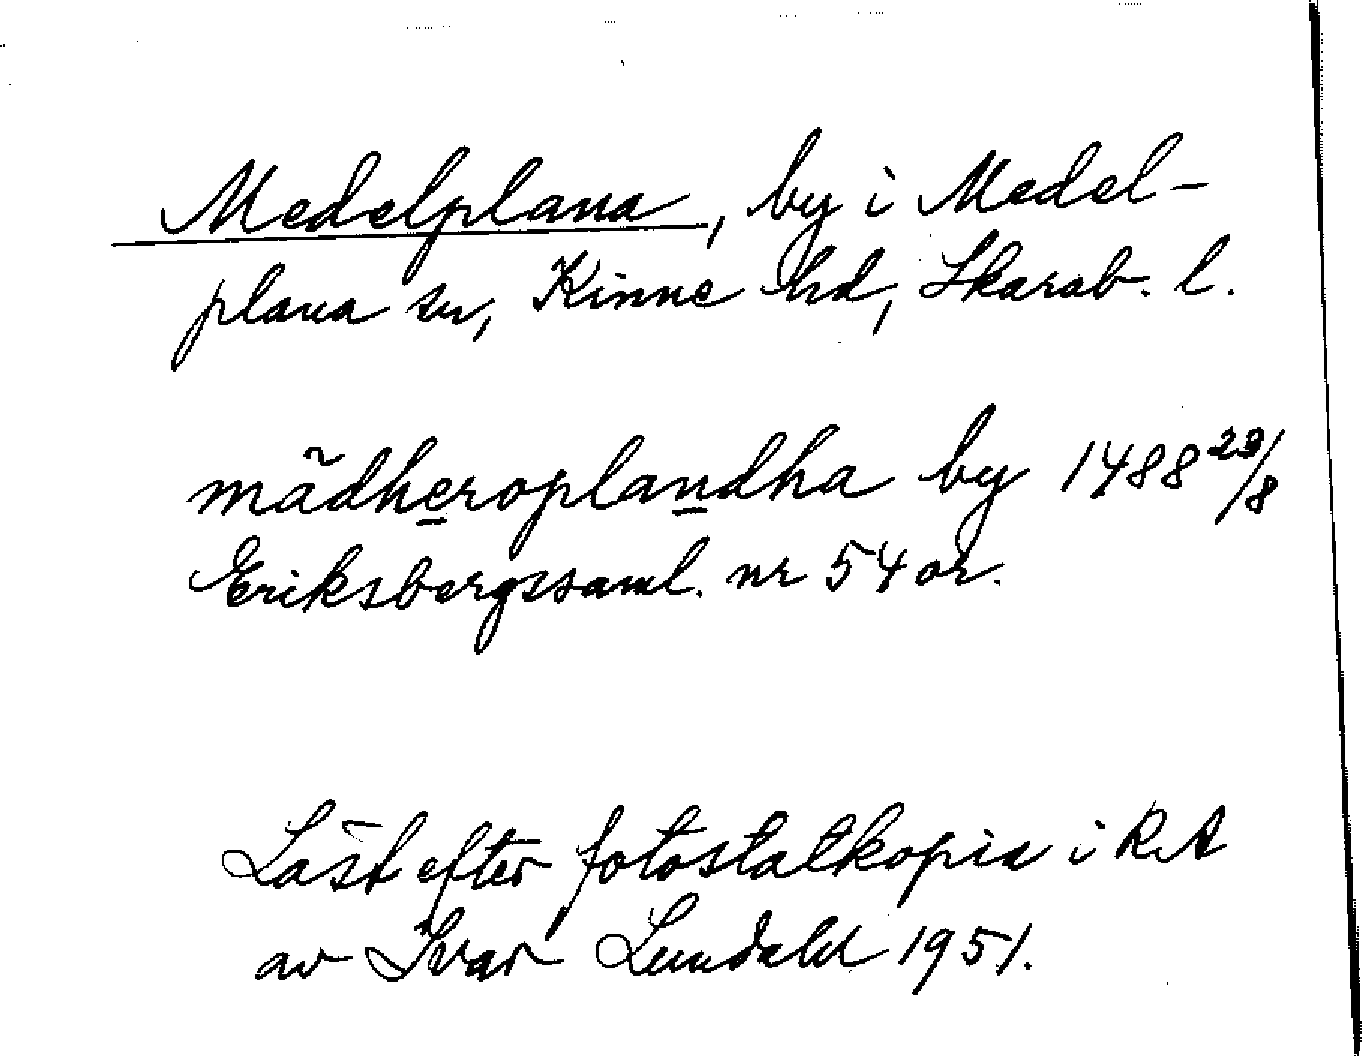 Medelplana, by i Medel-
plana sn, Kinne hd, Skarab. l.
mädheroplandha by 1488 29/8
Eriksbergssaml. nr 54 or.
Läst efter fotostatkopia i RA
av Ivar Lundahl 1951.